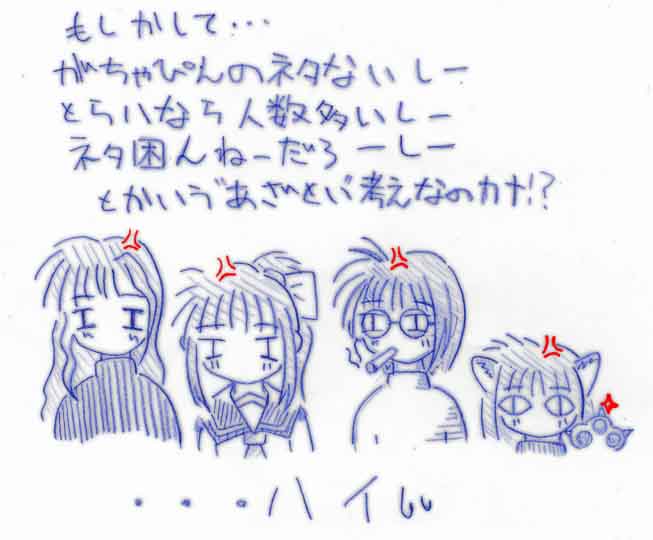 もしかして・・・
がちゃぴんのネタないしー
とらハなら人数多いしー
ネタ困んねーだろーしー
とかいうあざとい考えなのカナ!?
・・・ハイ